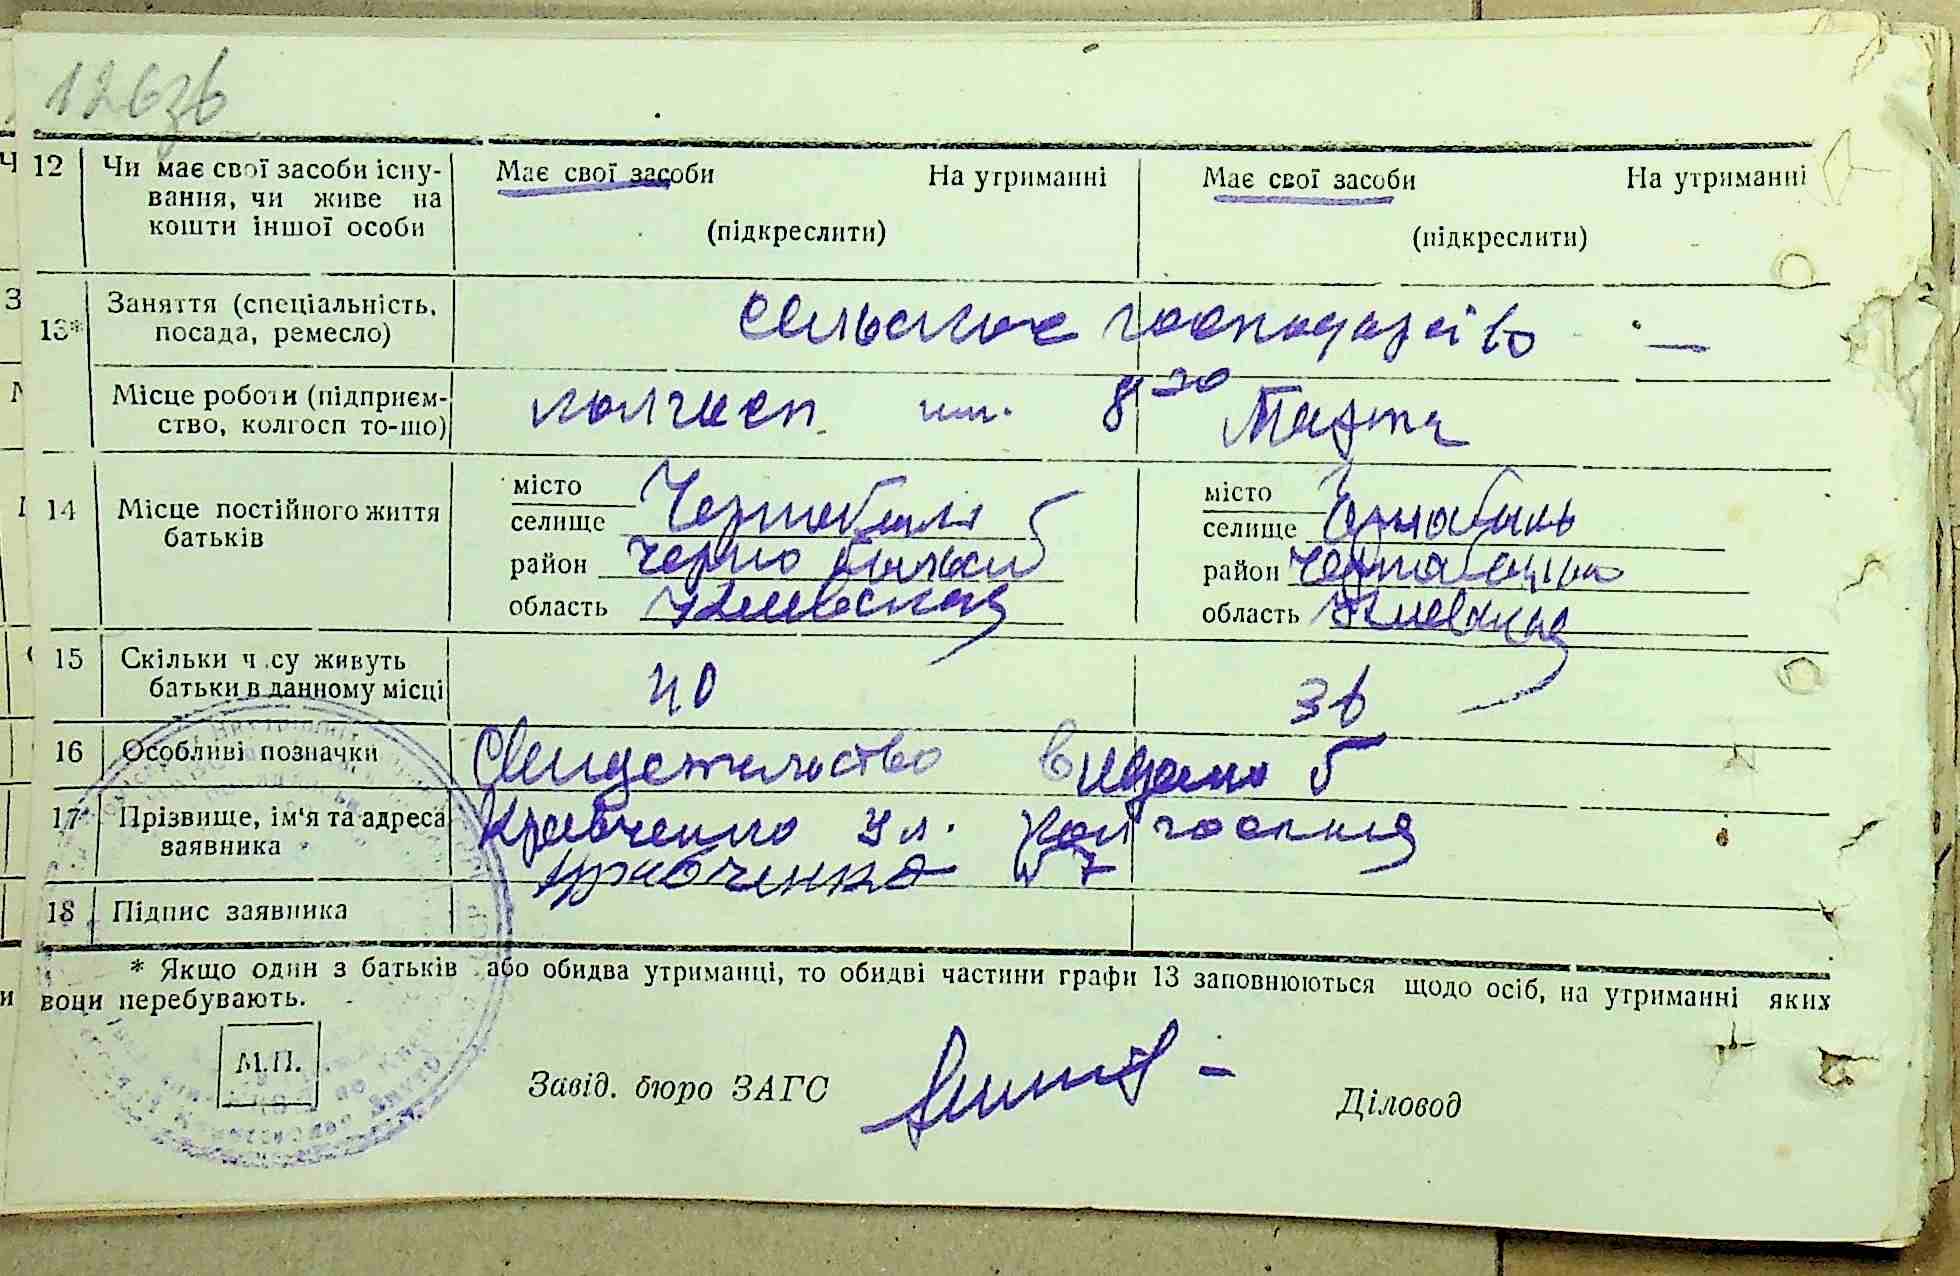 126зв
12 Чи має свої засоби існу- Має свої засоби На утриманні Має свої засоби На утриманні
вання, чи живе на
кошти іншої особи (підкреслити) (підкреслити)
13* Заняття (спеціальність, сельское господарство —
посада, ремесло)
Місце роботи (підприєм- колгосп им. 8го Марта
ство, колгосп то-що)
14 Місце постійного життя місто Чернобыль місто Чернобыль
батьків селище селище
район район
область Киевская область Киевская
15 Скільки ч су живуть 40 36
батьки в данному місці
16 Особливі позначки Свидетельство видано
17 Прізвище, ім'я та адреса Кравченко ул. Колгоспная
заявника №7
Кравченко
18 Підпис заявника
* Якщо один з батьків або обидва утриманці, то обидві частини графи 13 заповнюються щодо осіб, на утриманні яких
вони перебувають.
М.П.
Завід. бюро ЗАГС Діловод